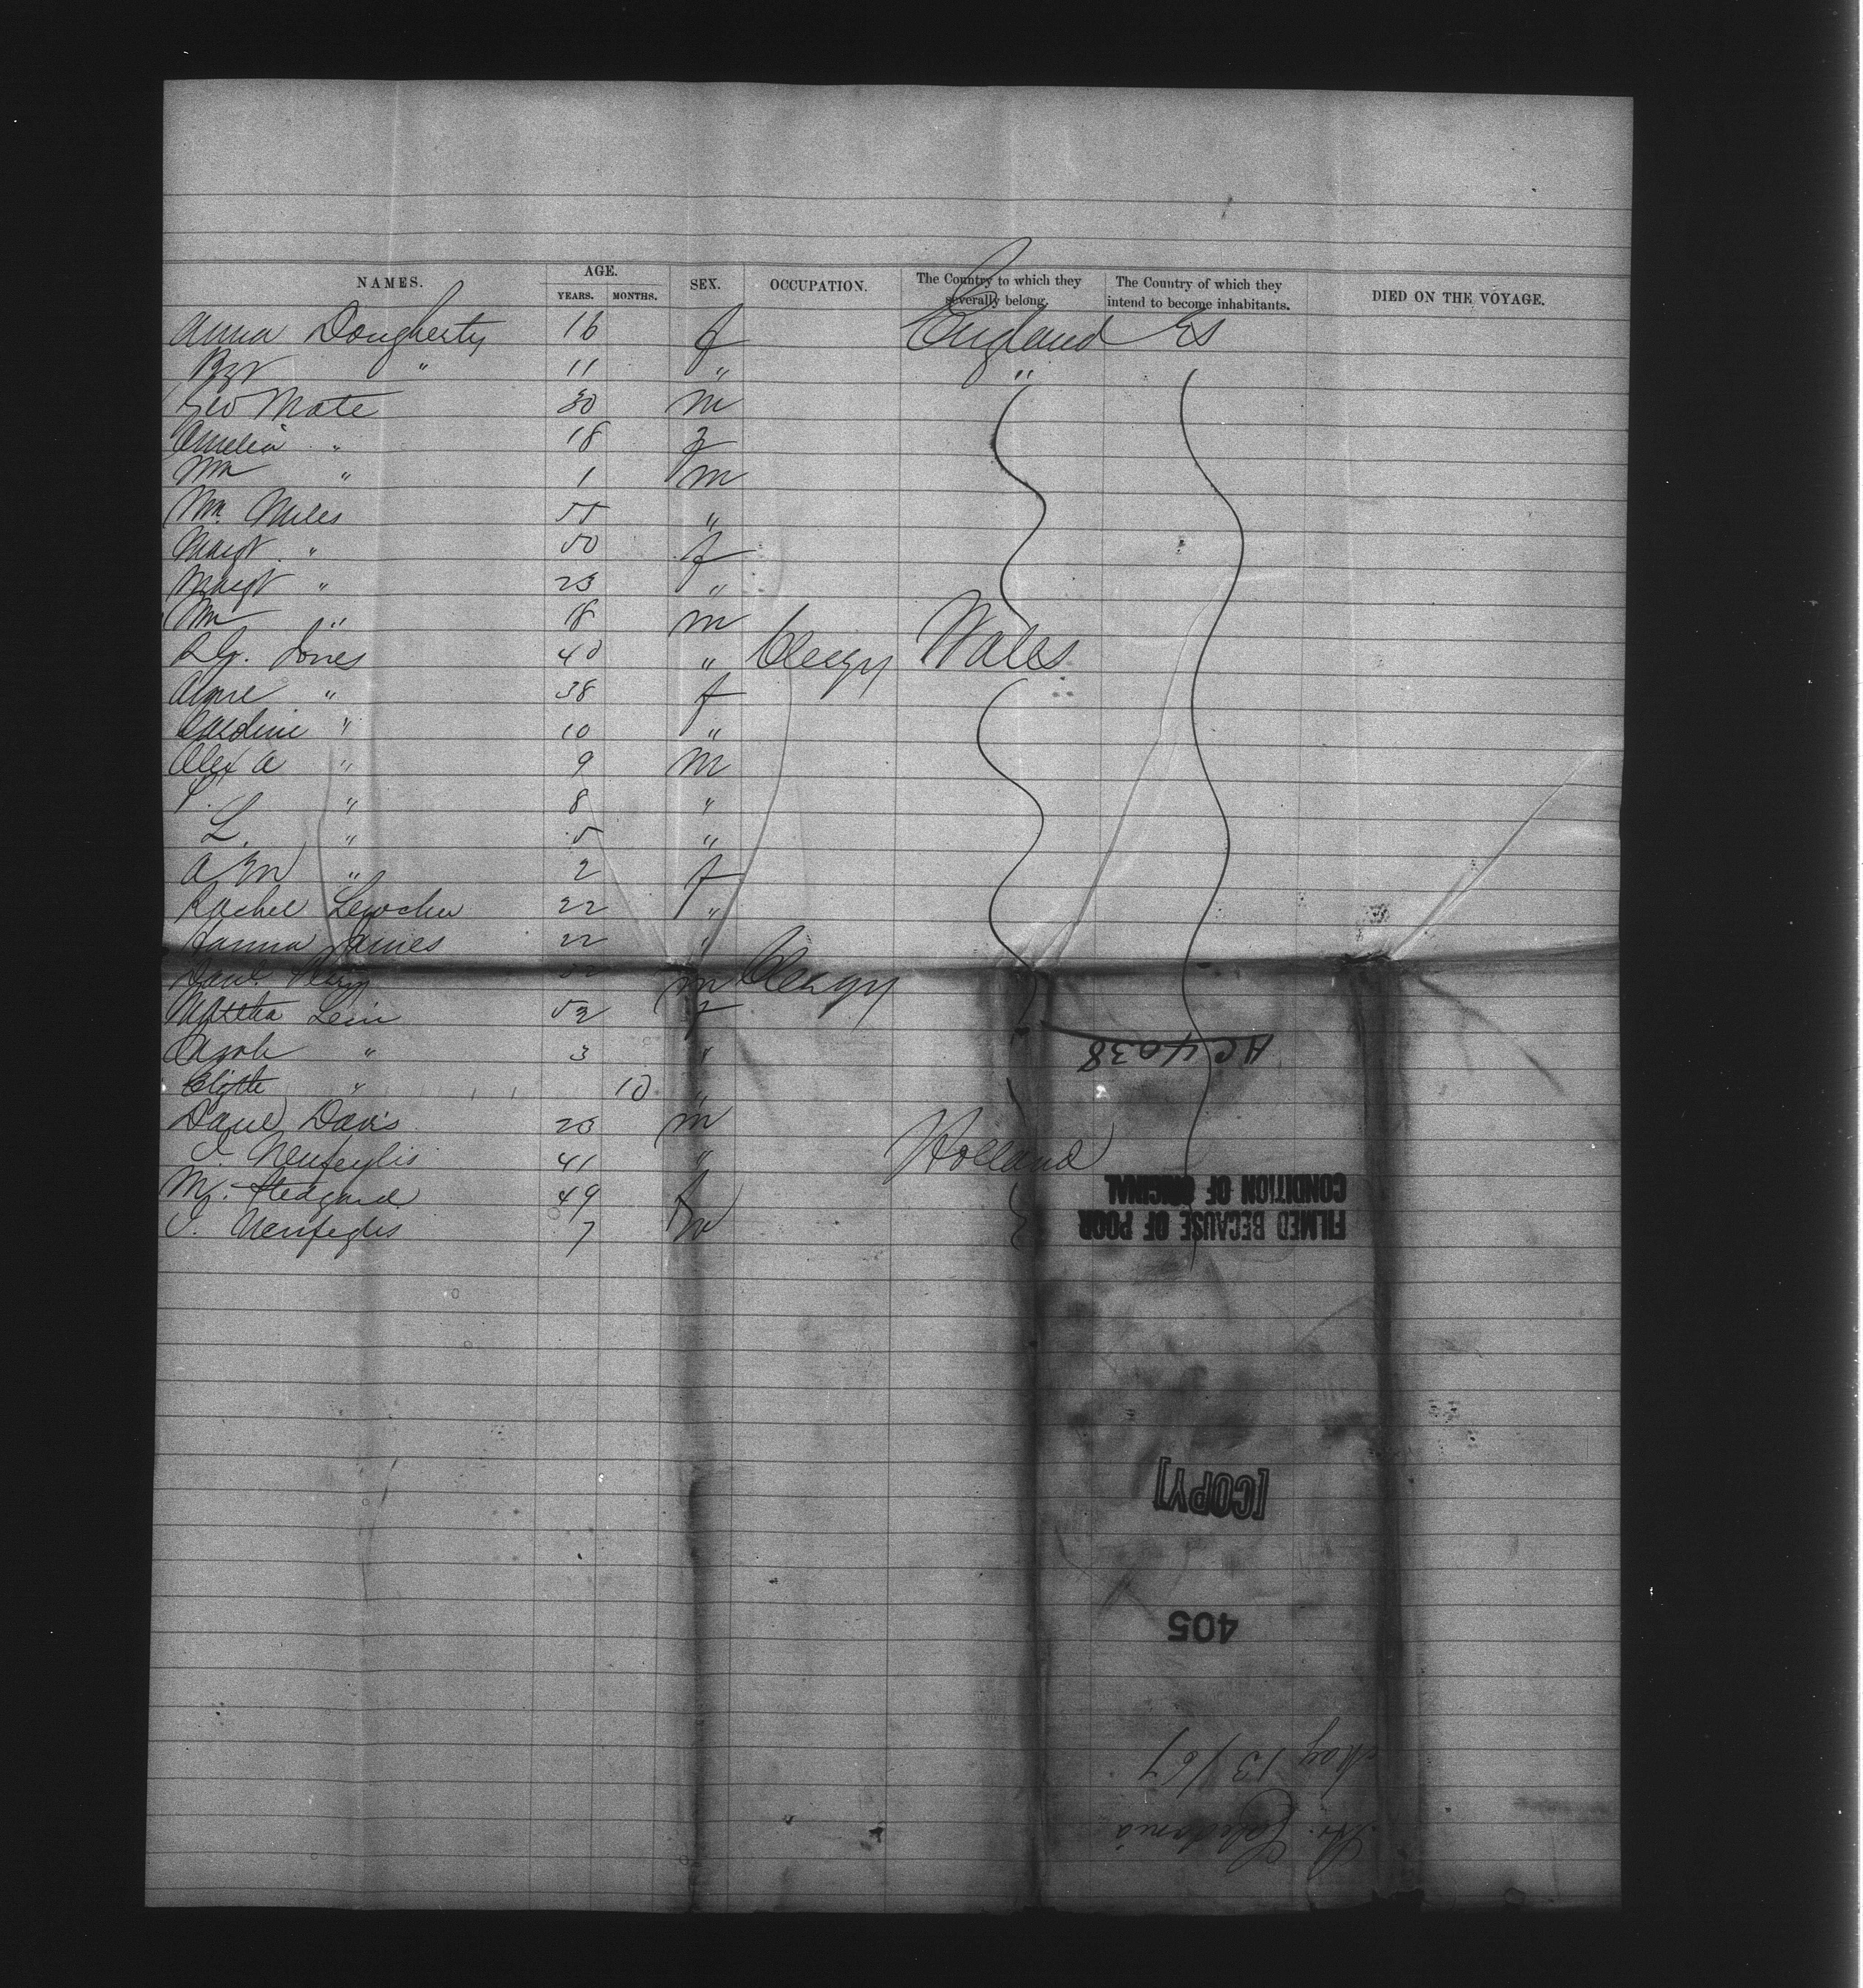 NAMES. AGE. SEX. OCCUPATION. The Country to which they severally belong. The Country of which they intend to become inhabitants. DIED ON THE VOYAGE.
YEARS. MONTHS.
Anna Dougherty 16 f England US
" 11 " "
Geo Mate 30 m
Amelia " 18 f
Wm " 1 m
Wm. Miles 55 "
Margt. " 50 f
Margt " 23 "
Wm " 18 m
R.G. Jones 40 " Clergy Wales
Anne " 38 f
Caroline " 10 "
Alex A " 9 m
" 8 "
L. " 5 "
A M " 2 f
Rachel 22 "
Hanna James 22 "
m Clergy
Martha 52 f
" 3 "
" 10 "
Danl Davis 23 m
J. 41 " Holland
49 f
J. 7 m
AC 4038
FILMED BECAUSE OF POOR
CONDITION OF ORIGINAL
[COPY]
405
May 13/67
Str. Caledonia